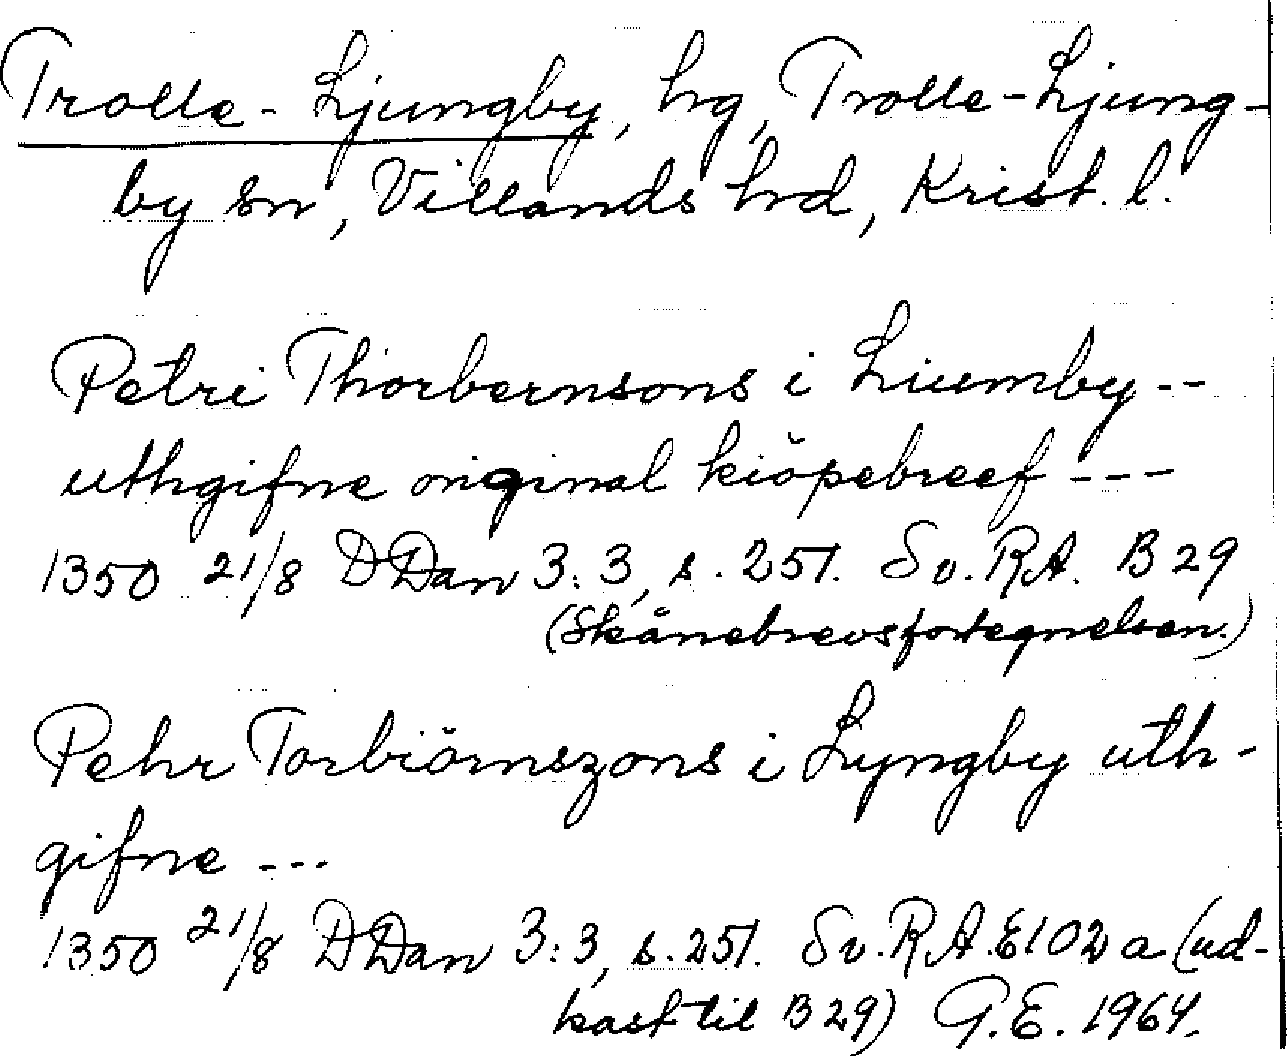 Trolle-Ljungby, hg, Trolle-Ljung-
by sn, Villands hd, Krist. l.
Petri Thorbernsons i Liumby --
uthgifne original kiöpebreef ---
1350 21/8 DDan 3:3, s. 251. Sv. RA. B 29
(Skånebrevsfortegnelsen.)
Pehr Torbiörnszons i Lyngby uth-
gifne ---
1350 21/8 DDan 3:3, s. 251. Sv. RA. E102 a (ud-
kast til B 29) G.E. 1964.